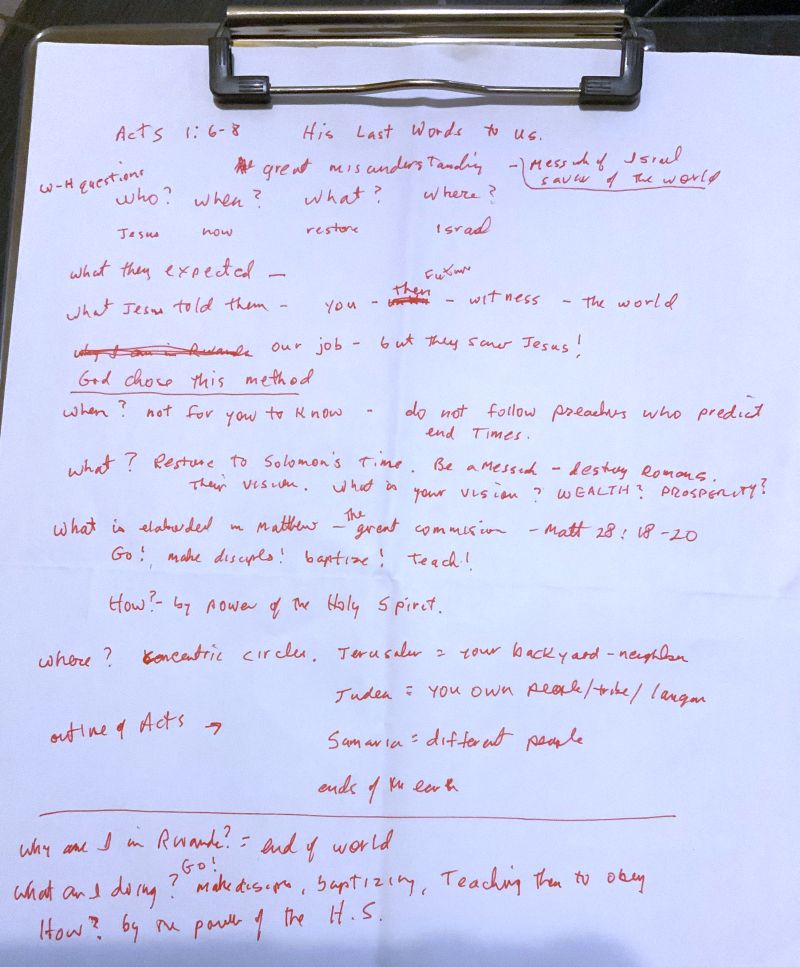 Acts 1:6-8 His Last Words to us.
great misunderstanding - Messiah of Israel
savior of the world
W-H questions
who? when? what? where?
Jesus now restore Israel
what they expected -
Future
what Jesus told them - you - then - witness - the world
why I am in Rwanda our job - but they saw Jesus!
God chose this method
when? not for you to know - do not follow preachers who predict
end Times.
what? Restore to Solomon's Time. Be a Messiah - destroy Romans.
Their vision. what is your vision? WEALTH? PROSPERITY?
what is elaborded in Matthew - The great commision - Matt 28:18-20
Go! make disciples! baptize! teach!
How? - by power of the Holy Spirit.
where? concentric circles. Jerusalem = your backyard - neighbor
Judea = you own people/tribe/langua
outline of Acts →
Samaria = different people
ends of the earth
why am I in Rwanda? = end of world
GO!
what am I doing? make disciples, baptizing, Teaching them to obey
How? by the power of the H.S.